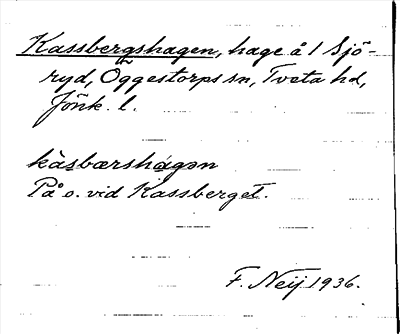 Kassbergshagen, hage å 1 Sjö-
ryd, Öggestorps sn, Tveta hd,
Jönk. l.
kàsbærshágən
På o. vid Kassberget.
F. Neij 1936.